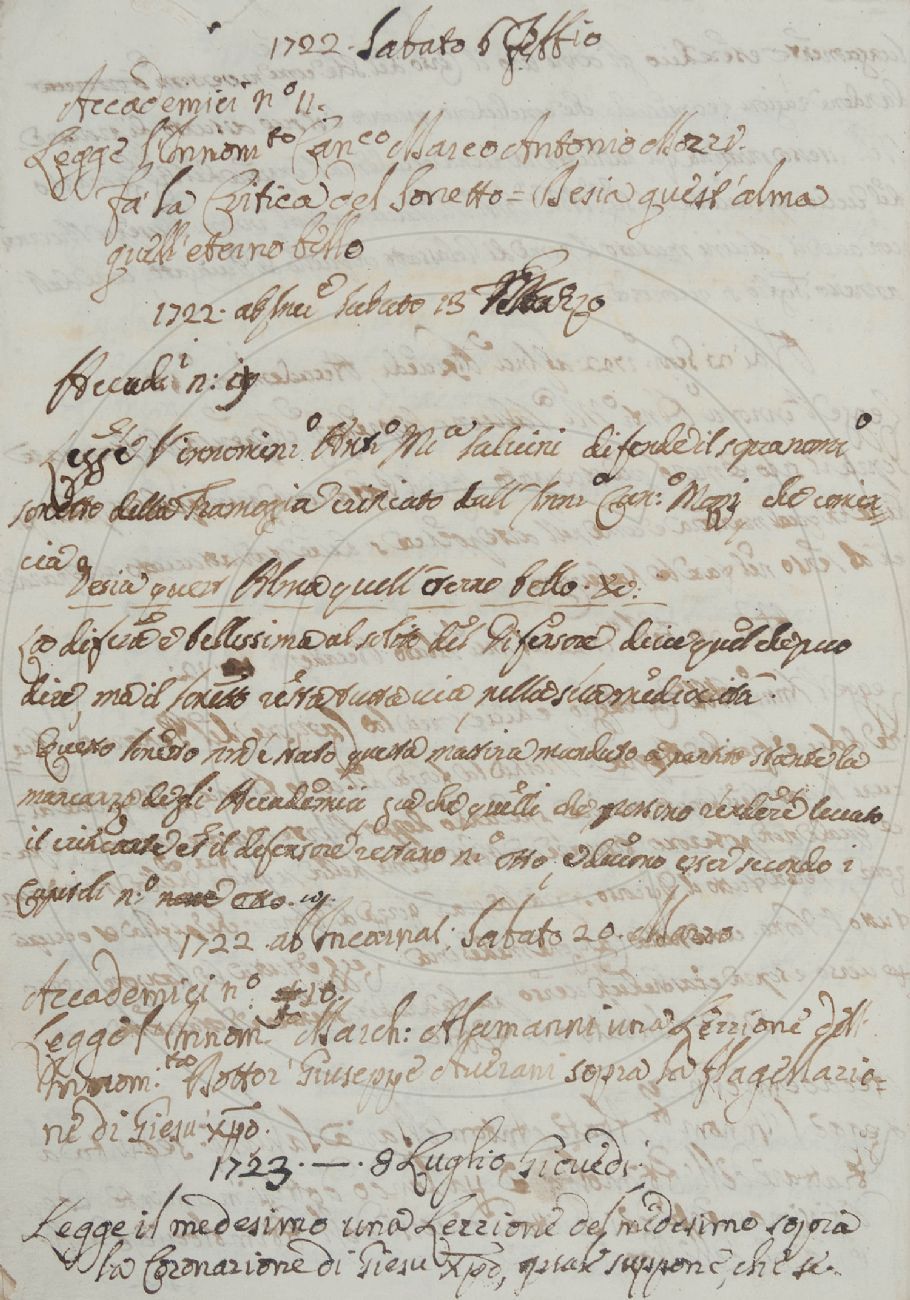 1722. Sabato 6 Febbio
Accademici n.o 11.
Legge l'Innom.to Can.co Marco Antonio Mozzi.
fa la Critica del Sonetto = Desia quest'alma
quell'eterno bello
1722. ab Inc.e Sabato 13 Marzo
Accad.i n:
Legge l'innomin.o Ant.o M.a Salvini difende il sopranom.o
sonetto della Tramogia criticato dall'Inn.o Can.o Mozzi che comin=
cia
Desia quest Alma quell'eterno bello. &c.
La difesa è bellissima al solito del Difensore dice quel che puo
dire, ma il sonetto resta tutta via nella sua mediocrità.
Questo sonetto non è stato questa mattina mandato a partito stante la
mancanza degli Accademici già che quelli che possono rendere levato
il criticante et il difensore restano n.o otto, e devono esser secondo i
Capitoli n.o
1722 ab Incarnat: Sabato 20. Marzo
Accademici n.o 10.
Legge l'Innom. March: Alamanni una Lezzione dell'
Innom.to Dottor Giuseppe Averani sopra la flagellazio=
ne di Giesù Xpo.
1723. — 8 Luglio Giovedì.
Legge il medesimo una Lezzione del medesimo sopra
la Coronazione di Giesu Xpo, quale suppone, che se.